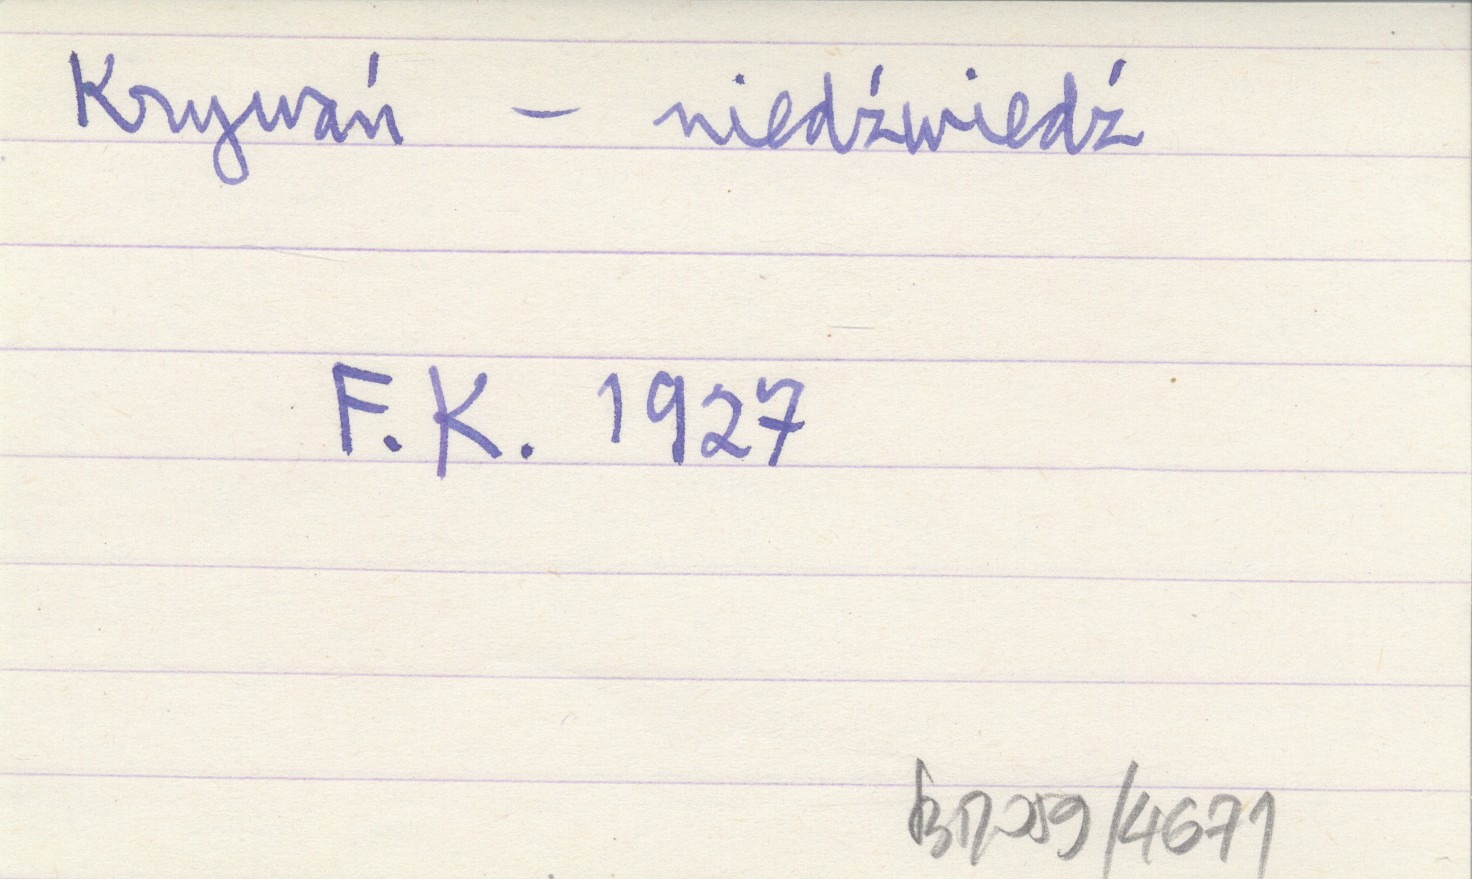 Krywań – niedźwiedź
F.K. 1927
/4671